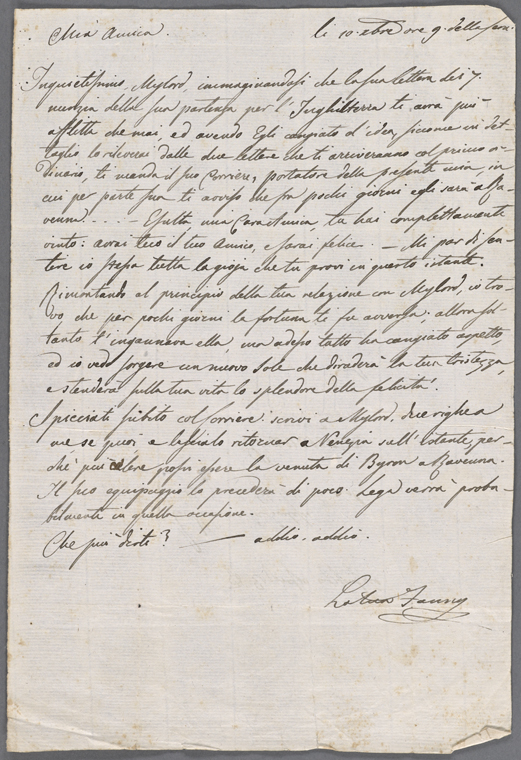 Mia Amica.
li 10 xbre ore 9. della sera.
Inquietissimo Mylord, immaginandosi che la sua lettera dei 7
nunzia della sua partenza per l'Inghilterra ti avrà più
afflitta che mai, ed avendo Egli cangiato d'idea, siccome in det-
taglio lo rileverai dalle due lettere che ti arriveranno col primo or-
dinario, ti manda il suo Corriere, portatore della presente mia, in
cui per parte sua ti avviso che fra pochi giorni egli sarà a Ra-
venna. . . . – Esulta mia Cara Amica, tu hai completamente
vinto: avrai teco il tuo Amico, e sarai felice. – Mi par di sen-
tire io stessa tutta la gioja che tu provi in questo istante.
Rimontando al principio della tua relazione con Mylord, io tro-
vo che per pochi giorni la fortuna ti fu avversa; allora sol-
tanto t'ingannava ella, ma adesso tutto ha cangiato aspetto,
ed io vedo sorgere un nuovo Sole che diraderà la tua tristezza,
e stenderà sulla tua vita lo splendore della felicità.
Spicciati subito col Corriere: scrivi a Mylord, due righe a
me, se puoi, e lascialo ritornar a Venezia sull'istante, per-
chè può essere
la venuta di Byron a Ravenna.
Il suo equipaggio lo precederà di poco. Lega verrà proba-
bilmente in quella occasione.
Che più dirti? — addio. addio.
La tua Fanny